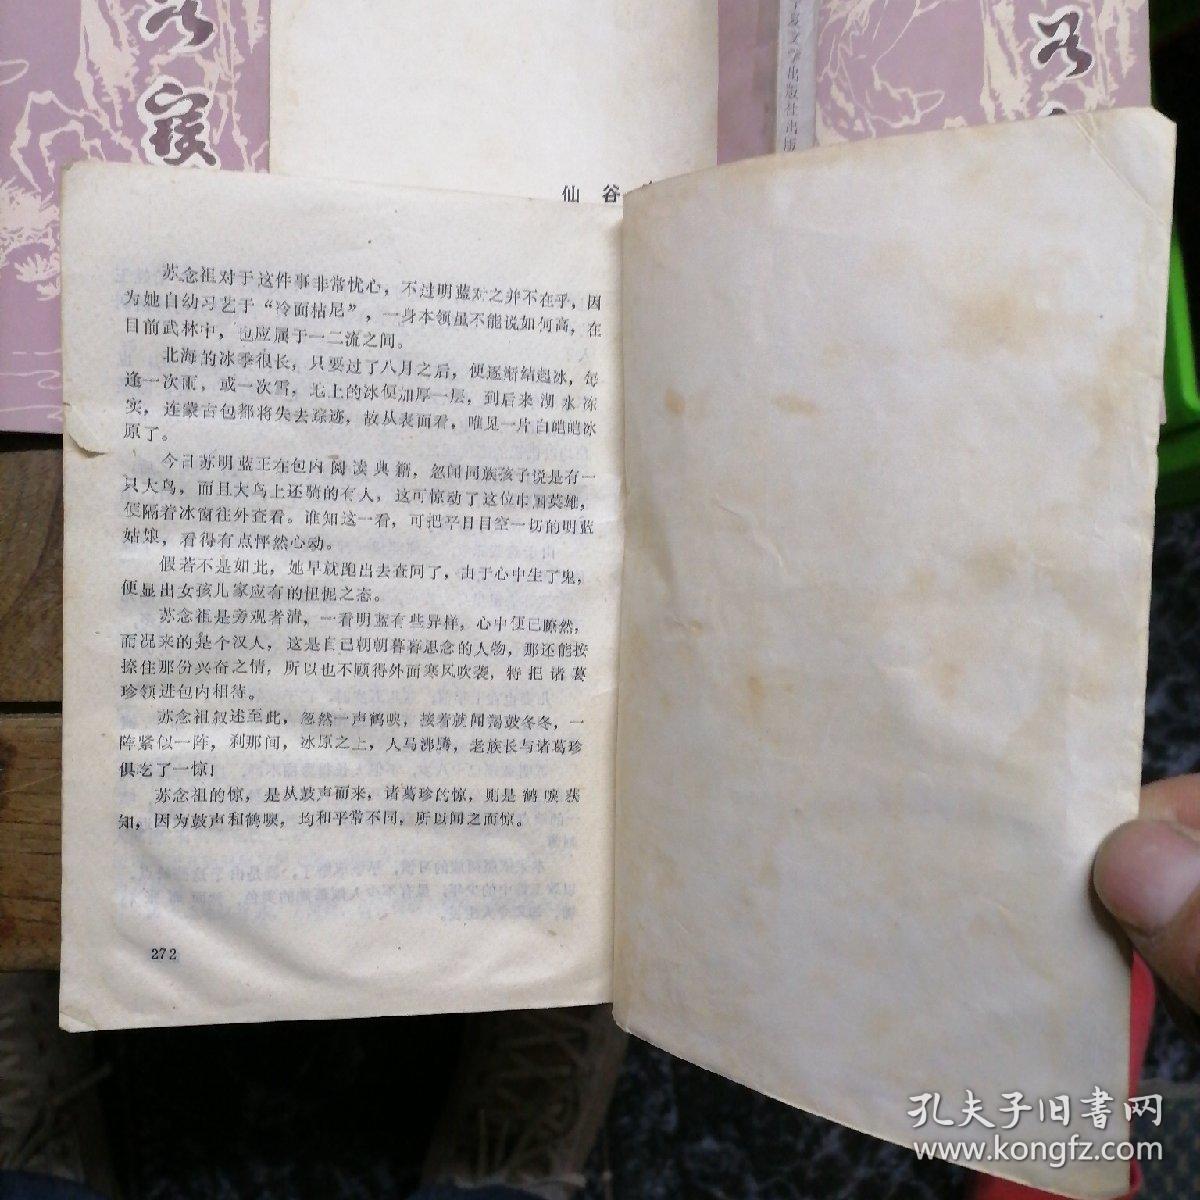 谷
寝
宁夏文学出版社出版
谷
仙谷
苏念祖对于这件事非常忧心，不过明蓝对之并不在乎，因
为她自幼习艺于“冷面枯尼”，一身本领虽不能说如何高，在
目前武林中，也应属于一二流之间。
北海的冰季很长，只要过了八月之后，便逐渐结起冰，每
逢一次雨，或一次雪，地上的冰便加厚一层，到后来沏水冻
实，连蒙古包都将失去踪迹，故从表面看，唯见一片白皑皑冰
原了。
今日苏明蓝正在包内阅读典籍，忽闻同族孩子说是有一
只大鸟，而且大鸟上还骑的有人，这可惊动了这位巾帼英雄，
便隔着冰窗往外查看。谁知这一看，可把平日目空一切的明蓝
姑娘，看得有点怦然心动。
假若不是如此，她早就跑出去查问了，由于心中生了鬼，
便显出女孩儿家应有的扭捏之态。
苏念祖是旁观者清，一看明蓝有些异样，心中便已瞭然，
而况来的是个汉人，这是自己朝朝暮暮思念的人物，那还能按
捺住那份兴奋之情，所以也不顾得外面寒风吹袭，特把诸葛
珍领进包内相待。
苏念祖叙述至此，忽然一声鹤唳，接着就闻羯鼓冬冬，一
阵紧似一阵，刹那间，冰原之上，人马沸腾，老族长与诸葛珍
俱吃了一惊！
苏念祖的惊，是从鼓声而来，诸葛珍的惊，则是鹤唳获
知，因为鼓声和鹤唳，均和平常不同，所以闻之而惊。
272
孔夫子旧书网
www.kongfz.com